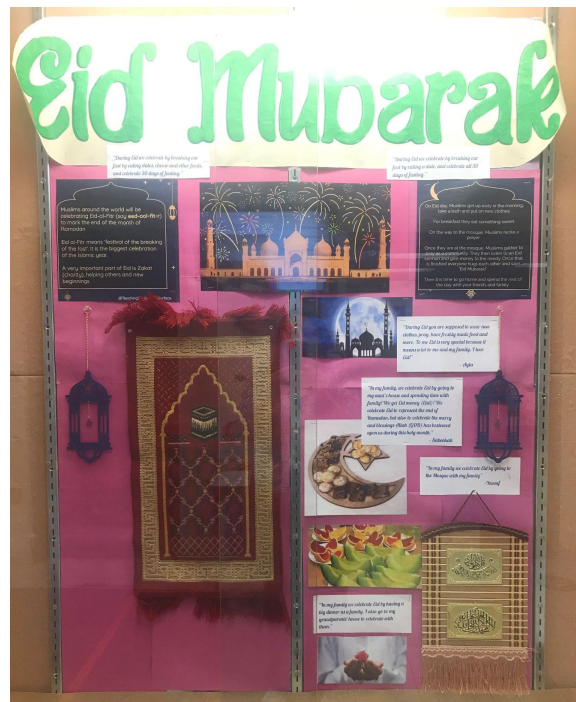 Eid Mubarak
"During Eid we celebrate by breaking our
fast by eating dates, cheese and other foods,
and celebrate 30 days of fasting."
"During Eid we celebrate by breaking our
fast by eating a date, and celebrate all 30
days of fasting."
Muslims around the world will be
celebrating Eid-al-Fitr (say eed-ool-fit-r)
to mark the end of the month of
Ramadan
Eid al-Fitr means "festival of the breaking
of the fast". It is the biggest celebration
of the Islamic year.
A very important part of Eid is Zakat
(charity), helping others and new
beginnings
On Eid day, Muslims get up early in the morning,
take a bath and put on new clothes
For breakfast they eat something sweet
On the way to the mosque, Muslims recite a
prayer
Once they are at the mosque, Muslims gather to
pray as a community. They then listen to an Eid
sermon and give money to the needy. Once that
is finished everyone hugs each other and says
"Eid Mubarak!"
Then it is time to go home and spend the rest of
the day with your friends and family
"During Eid you are supposed to wear new
clothes, pray, have freshly made food and
more. To me Eid is very special because it
means a lot to me and my family. I love
Eid!"
"In my family, we celebrate Eid by going to
my aunt's house and spending time with
family! We get Eid money (Eidi)! We
celebrate Eid to represent the end of
Ramadan, but also to celebrate the mercy
and blessings Allah has bestowed
upon us during this holy month."
"In my family we celebrate Eid by going to
the Mosque with my family"
-Yousuf
"In my family we celebrate Eid by having a
big dinner as a family. I also go to my
grandparents' house to celebrate with
them."